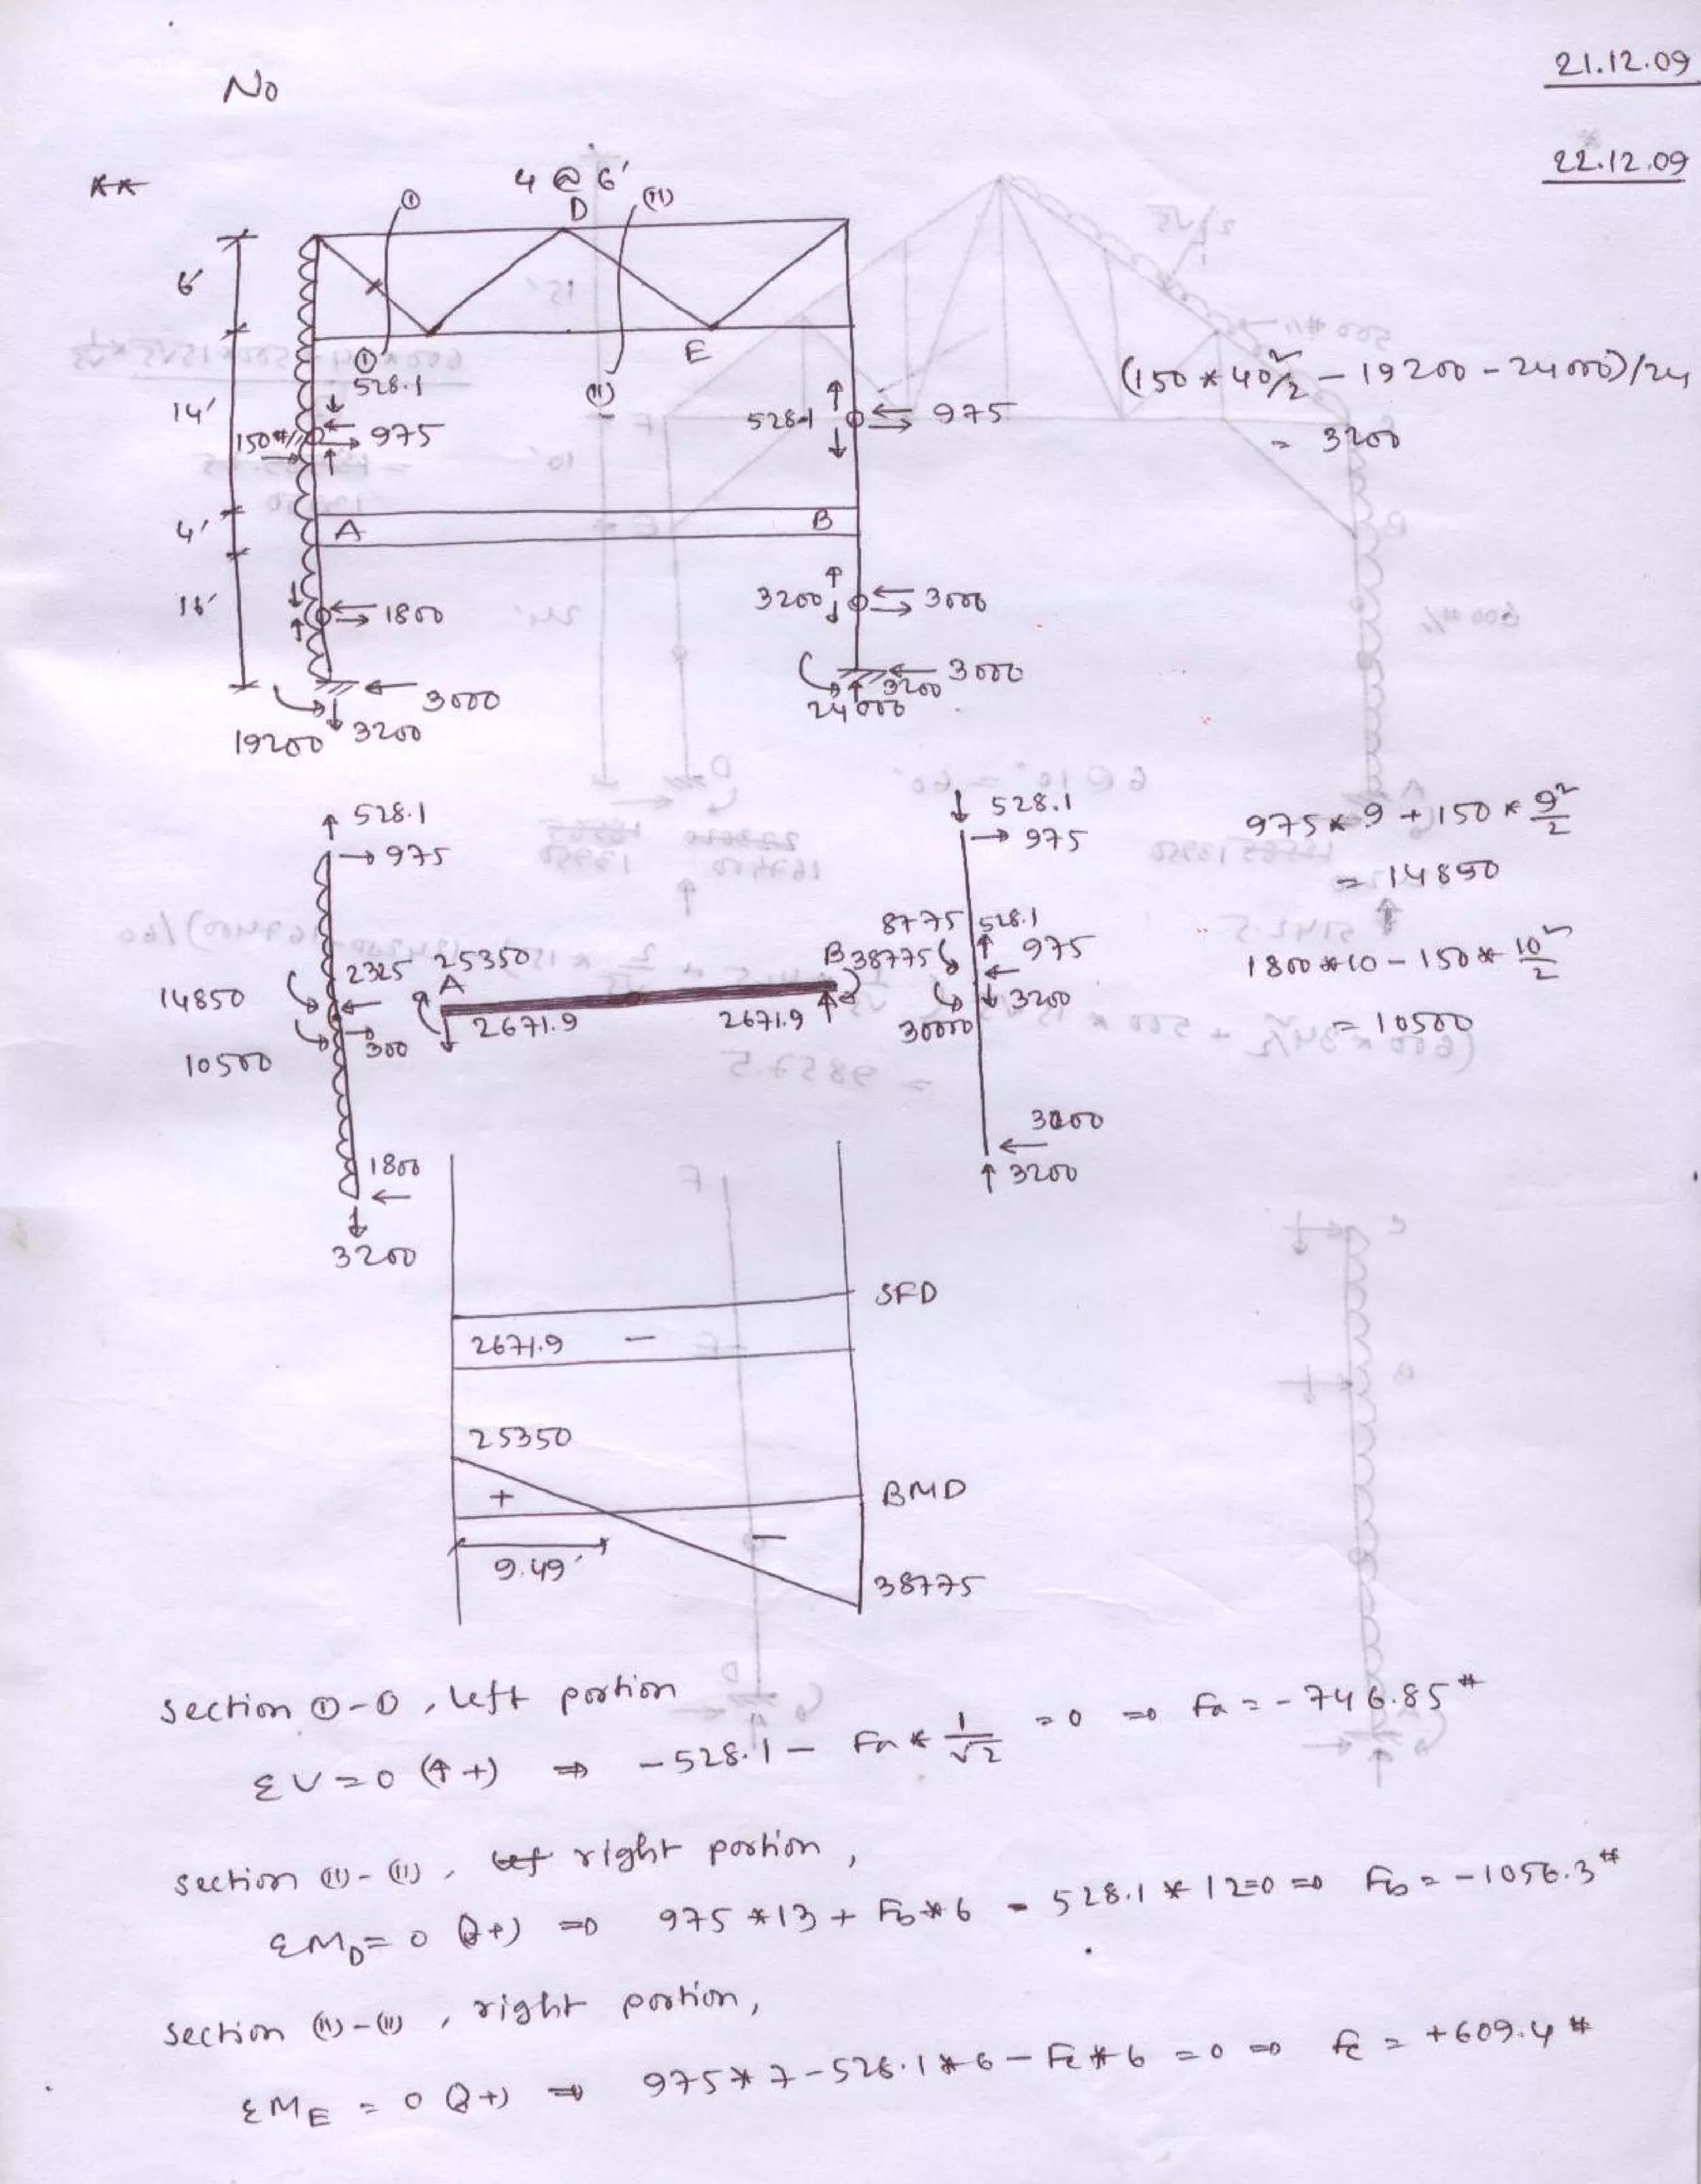 No
21.12.09
22.12.09
**
4 @ 6'
① D (II)
6'
① E (II)
528.1
14'
150#/' 975
528.1 975
(150*40²/2 - 19200 - 24000)/24
= 3200
4'
A B
16'
1800
3200 3000
3000
3000
3200
24000
19200 3200
528.1
975
528.1
975
975*9 + 150*9²/2
= 14850
8775 528.1
2325 25350 B 38775 975
A
14850
2671.9 2671.9 3200
30000
300
10500
1800*10 - 150*10²/2
= 10500
3000
1800
3200
3200
SFD
2671.9 −
25350
+
BMD
−
9.49'
38775
Section ①-①, left portion
ΣV=0 (↑+) ⇒ -528.1 - Fa*1/√2 = 0 ⇒ Fa = -746.85#
Section (II)-(II), right portion,
ΣM_D = 0 ⇒ 975*13 + Fb*6 - 528.1*12=0 ⇒ Fb = -1056.3#
Section (II)-(II), right portion,
ΣM_E = 0 ⇒ 975*7 - 528.1*6 - Fc*6 = 0 ⇒ Fc = +609.4#